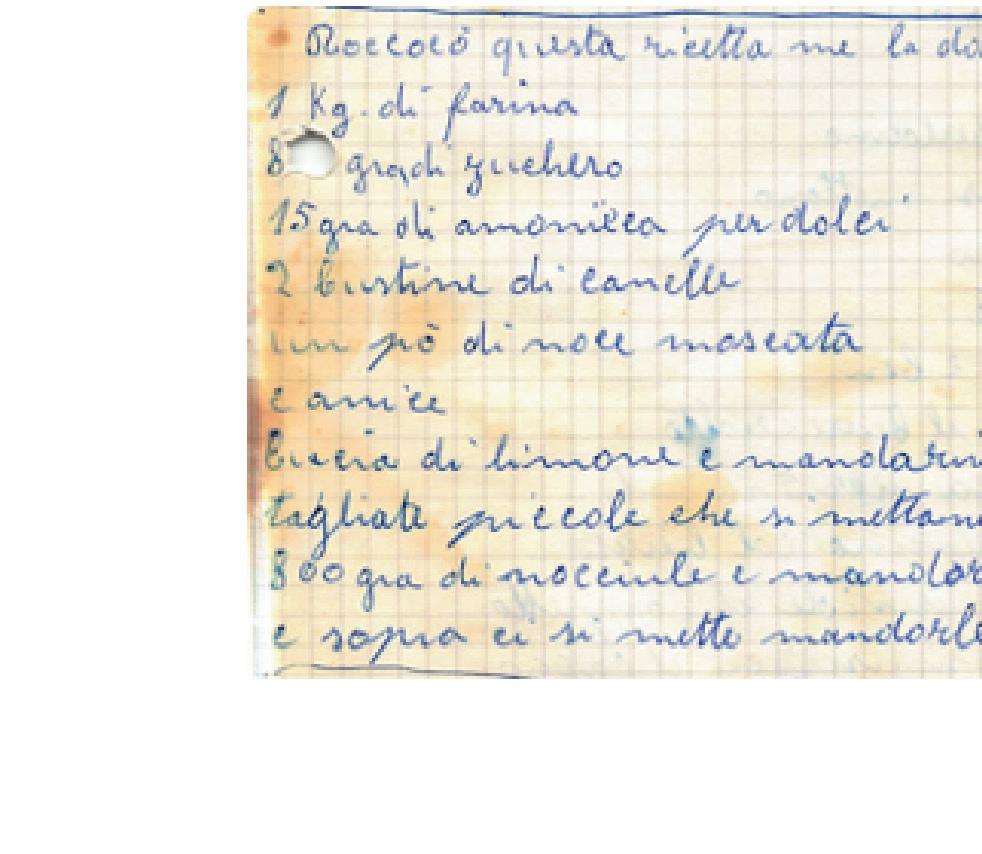 Roccocò questa ricetta me la da
1 Kg. di farina
8 gra di zuchero
15 gra di amoniaca per dolci
2 bustine di canelle
un pò di noce moscata
e anice
bucia di limone e mandarin
tagliate piccole che si mettano
800 gra di nocciule e mandor
e sopra ci si mette mandorle